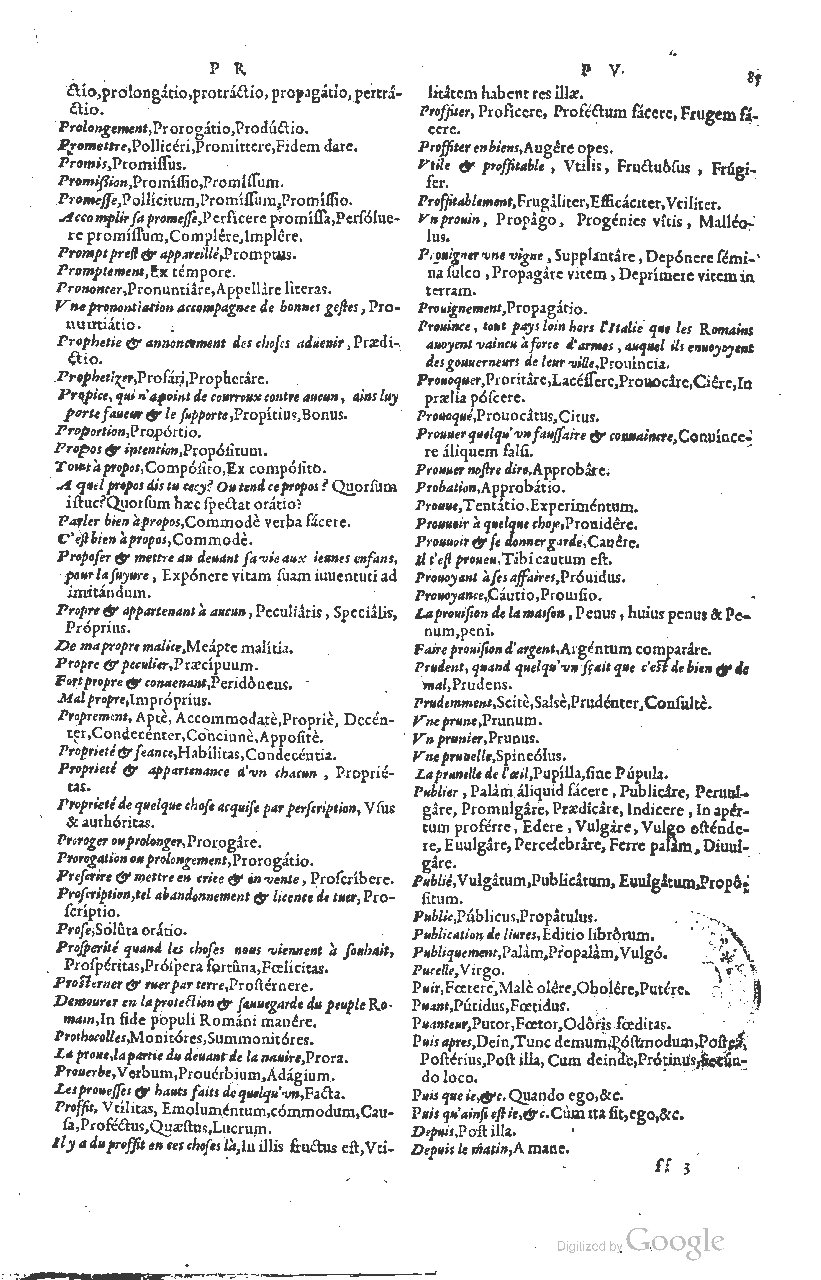 P R
P V.
85
ctio,prolongátio,protráctio, propagátio, pertrá-
ctio.
Prolongement,Prorogátio,Prodúctio.
Promettre,Pollicéri,Promittere,Fidem dare.
Promis,Promiſſus.
Promiſſion,Promíſſio,Promíſſum.
Promeſſe,Pollícitum,Promíſſum,Promíſſio.
Accomplir ſa promeſſe,Perficere promíſſa,Perſólue-
re promíſſum,Complêre,Implêre.
Prompt preſt & appareillé,Promptus.
Promptement,Ex témpore.
Prononcer,Pronuntiâre,Appellâre literas.
Vne prononciation accompagnee de bonnes geſtes, Pro-
nuntiátio.
Prophetie & annoncement des choſes aduenir, Prædi-
ctio.
Prophetizer,Profári,Prophetâre.
Propice, qui n'a point de courroux contre aucun, ains luy
porte faueur & le ſupporte, Propítius,Bonus.
Proportion,Propórtio.
Propos & intention,Propóſitum.
Tout à propos,Compóſito,Ex compóſito.
A quel propos dis tu cecy? Ou tend ce propos? Quorſum
iſtuc?Quorſum hæc ſpectat orátio?
Parler bien à propos,Commodè verba fácere.
C'eſt bien à propos,Commodè.
Propoſer & mettre au deuant ſa vie aux ieunes enfans,
pour la ſuyure, Expónere vitam ſuam iuuentuti ad
imitándum.
Propre & appartenant à aucun, Peculiâris, Speciális,
Próprius.
De ma propre malice,Meápte malítia.
Propre & peculier,Præcípuum.
Fort propre & conuenant,Peridôneus.
Mal propre,Impróprius.
Proprement, Aptè, Accommodatè,Propriè, Decén-
ter,Condecénter,Concinnè,Appoſitè.
Proprieté & ſeance,Habílitas,Condecéntia.
Proprieté & appartenance d'vn chacun , Proprié-
tas.
Proprieté de quelque choſe acquiſe par perſcription, Vſus
& authóritas.
Proroger ou prolonger,Prorogâre.
Prorogation ou prolongement,Prorogátio.
Preſcrire & mettre en criee & in vente, Proſcríbere.
Proſcription,tel abandonnement & licence de tuer, Pro-
ſcríptio.
Proſe,Solûta orátio.
Proſperité quand les choſes nous viennent à ſouhait,
Proſpéritas,Próſpera fortûna,Fœlícitas.
Proſterner & ruer par terre,Proſtérnere.
Demourer en la protection & ſauuegarde du peuple Ro-
main,In fide pópuli Románi manêre.
Prothocolles,Monitóres,Summonitóres.
La proue,la partie du deuant de la nauire,Prora.
Prouerbe,Verbum,Prouérbium,Adágium.
Les proueſſes & hauts faits de quelqu'vn,Facta.
Proffit, Vtílitas, Emoluméntum,cómmodum,Cau-
ſa,Proféctus,Quæſtus,Lucrum.
Il y a du proffit en ces choſes là,In illis fructus eſt,Vti-
litâtem habent res illæ.
Proffiter, Profícere, Proféctum fácere, Frugem fá-
cere.
Proffiter en biens,Augêre opes.
Vtile & proffitable , Vtilis, Fructuôſus , Frúgi-
fer.
Proffitablement,Frugáliter,Efficáciter,Vtíliter.
Vn prouin, Propâgo, Progénies vîtis, Malléo-
lus.
Prouigner vne vigne , Supplantâre, Depónere ſémi-
na ſulco , Propagâre vitem , Deprímere vitem in
terram.
Prouignement,Propagátio.
Prouince , tout pays loin hors l'Italie que les Romains
auoyent vaincu à force d'armes , auquel ils enuoyoyent
des gouuerneurs de leur ville,Prouíncia.
Prouoquer,Proritâre,Lacéſſere,Prouocâre,Ciêre,In
prælia póſcere.
Prouoqué,Prouocâtus,Citus.
Prouuer quelqu'vn fauſſaire & conuaincre,Conuínce-
re áliquem falſi.
Prouuer noſtre dire,Approbâre.
Probation,Approbátio.
Prouue,Tentátio.Experiméntum.
Prouuoir à quelque choſe,Prouidêre.
Prouuoir & ſe donner garde,Cauêre.
Il t'eſt proueu,Tibi cautum eſt.
Prouoyant à ſes affaires,Próuidus.
Prouoyance,Cáutio,Prouíſio.
La prouiſion de la maiſon , Penus, huius penus & Pe-
num,peni.
Faire prouiſion d'argent,Argéntum comparâre.
Prudent, quand quelqu'vn ſçait que c'eſt de bien & de
mal,Prudens.
Prudemment,Scitè,Salsè,Prudénter,Conſultè.
Vne prune,Prunum.
Vn prunier,Prunus.
Vne prunelle,Spineólus.
La prunelle de l'œil,Pupílla,ſiue Púpula.
Publier , Palàm áliquid fácere , Publicâre, Peruul-
gâre, Promulgâre, Prædicâre, Indícere , In apér-
tum proférre, Edere , Vulgâre, Vulgo oſténde-
re, Euulgâre, Percelebrâre, Ferre palàm, Diuul-
gâre.
Publié,Vulgâtum,Publicâtum, Euulgâtum,Propó-
ſitum.
Public,Públicus,Propátulus.
Publication de liures,Editio librôrum.
Publiquement,Palàm,Própalàm,Vulgò.
Pucelle,Virgo.
Puir,Fœtêre,Malè olêre,Obolêre,Putére.
Puant,Pútidus,Fœtidus.
Puanteur,Putor,Fœtor,Odôris fœditas.
Puis apres,Dein,Tunc demum,Póſtmodum,Poſteà,
Poſtérius,Poſt illa, Cum deinde,Prótinus,Secún-
do loco.
Puis que ie,&c. Quando ego,&c.
Puis qu'ainſi eſt ie,&c. Cùm ita ſit,ego,&c.
Depuis,Poſt illa.
Depuis le matin,A mane.
ſſ 3
Digitized by Google